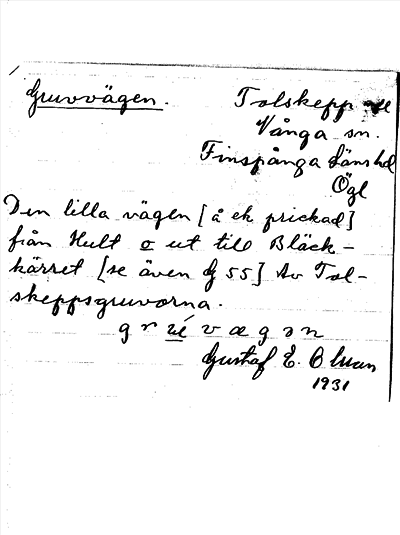 Gruvvägen.
Tolskepp
Vånga sn.
Finspånga länshd
Ögl
Den lilla vägen [å ek prickad]
från Hult o ut till Bläck-
kärret [se även G 55] Av Tol-
skeppsgruvorna.
g r ué v æ g ə n
Gustaf E. Olsson
1931